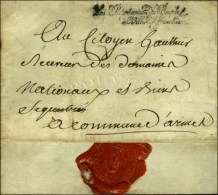 Au Citoyen Gauthier
Receveur des domaines
Nationaux et Biens
Sequestrés
a commune d'armes